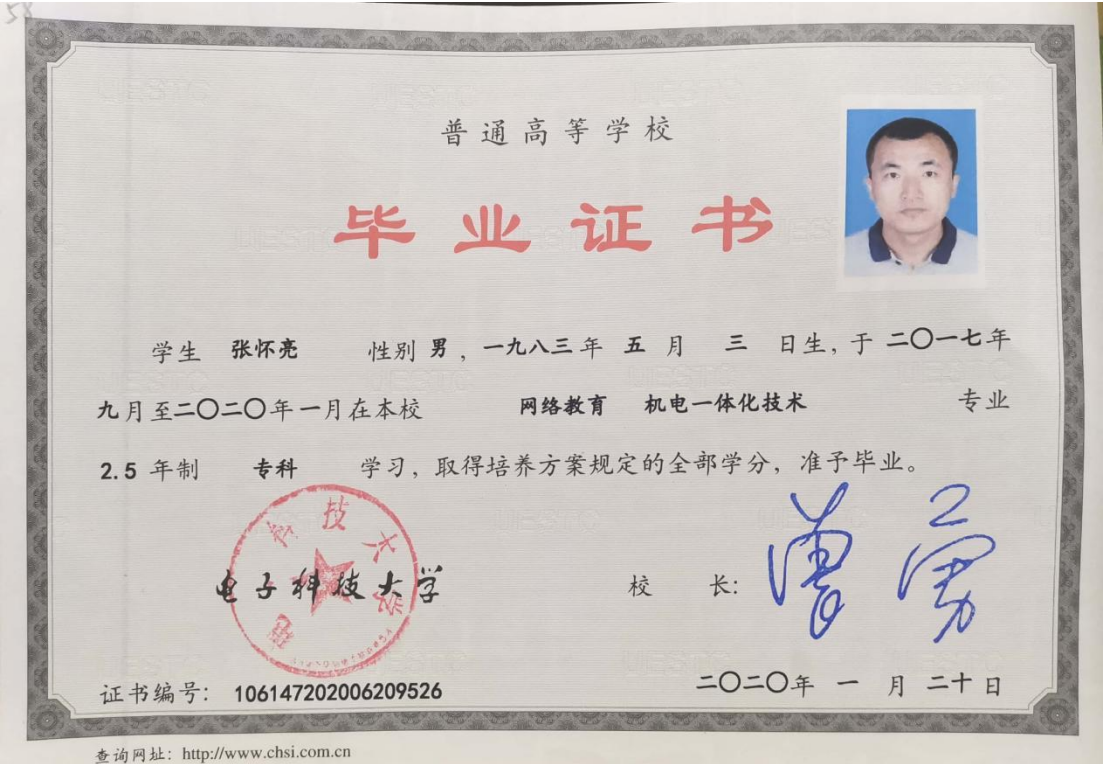 58
普通高等学校
毕业证书
学生 张怀亮 性别 男，一九八三年 五 月 三 日生，于 二〇一七年
九月至二〇二〇年一月在本校 网络教育 机电一体化技术 专业
2.5 年制 专科 学习，取得培养方案规定的全部学分，准予毕业。
电子科技大学
校 长: 曾勇
证书编号: 106147202006209526
二〇二〇年 一 月 二十日
查询网址: http://www.chsi.com.cn